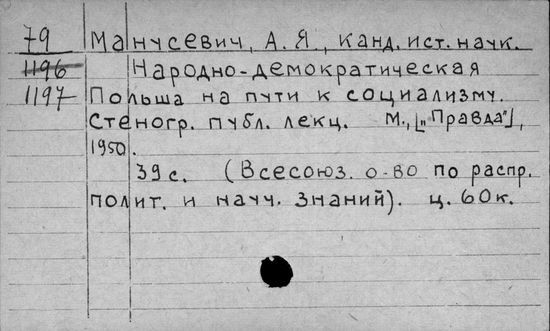 79 Манусевич, А. Я., канд. ист. наук.
1196 Народно-демократическая
1197 Польша на пути к социализму.
Стеногр. публ. лекц. М., [„Правда"],
1950.
39 с. (Всесоюз. о-во по распр.
полит. и науч. знаний). ц. 60 к.